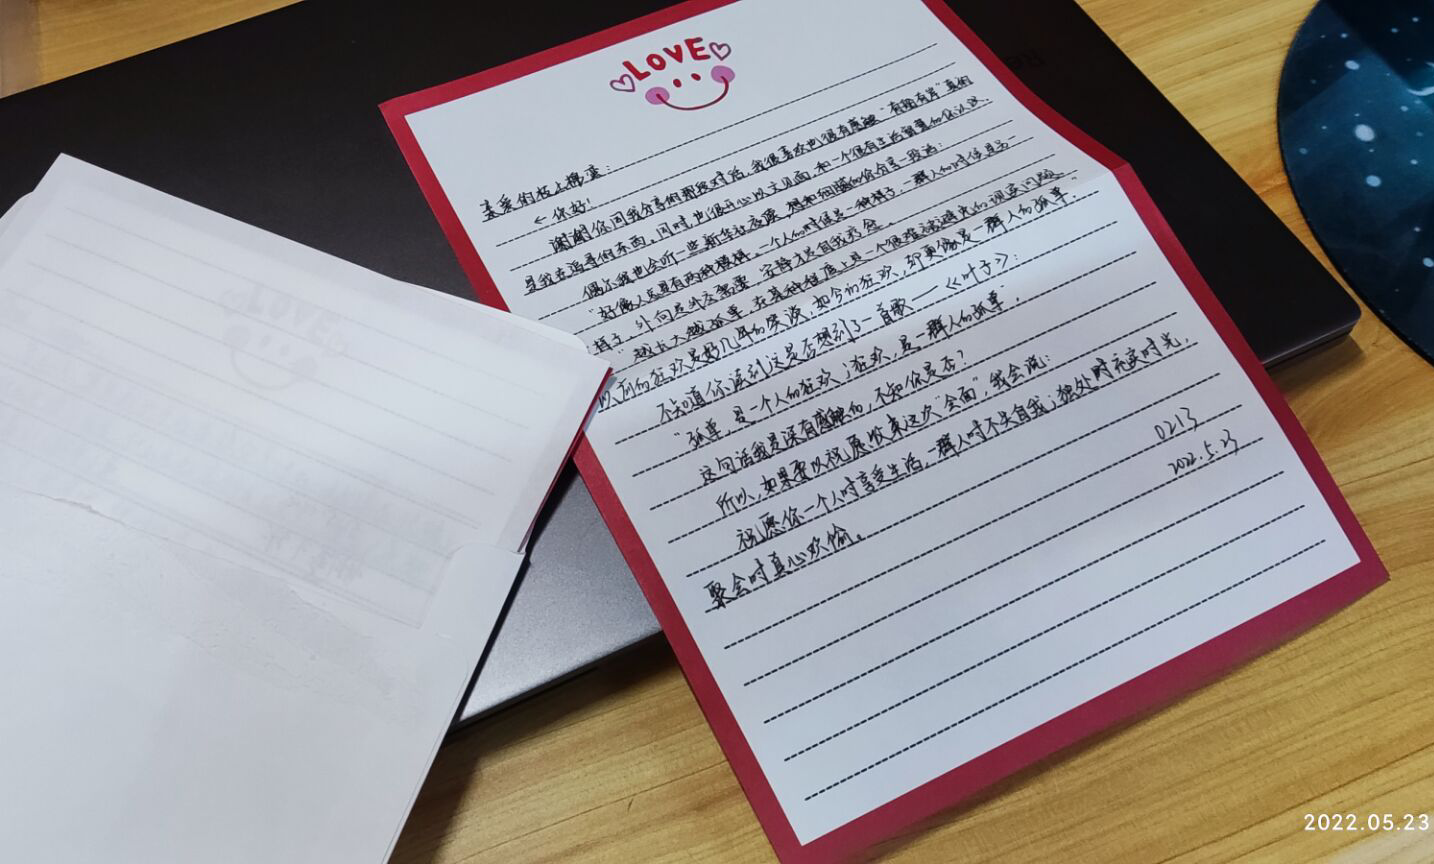 LOVE
亲爱的枝上槑蓝：
你好！
谢谢你同我分享的那段对话，我很喜欢也很有感触“有拥有岸”真的
是我在追寻的东西。同时，也很开心以文见面，和一个很有生活智慧的你认识。
偶尔我也会听一些新华社夜读，想和细腻的你分享一段话：
“好像人总具有两种模样，一个人的时候是一种样子，一群人的时候是另一
样子，外向是外在需要，安静方是自我疗愈。
“越长大越孤单，在某种程度上是一个很难被避免的现实问题，
以前的狂欢是好几年的笑谈，如今的狂欢，却更像是一群人的孤单。”
不知道你读到这是否想到了一首歌——《叶子》：
“孤单，是一个人的狂欢；狂欢，是一群人的孤单”。
这句话我是深有感触的，不知你是否？
所以，如果要以祝愿收束这次“会面”，我会说：
祝愿你一个人时享受生活，一群人时不失自我；独处时充实时光，
聚会时真心欢愉。
0213
2022.5.23
2022.05.23